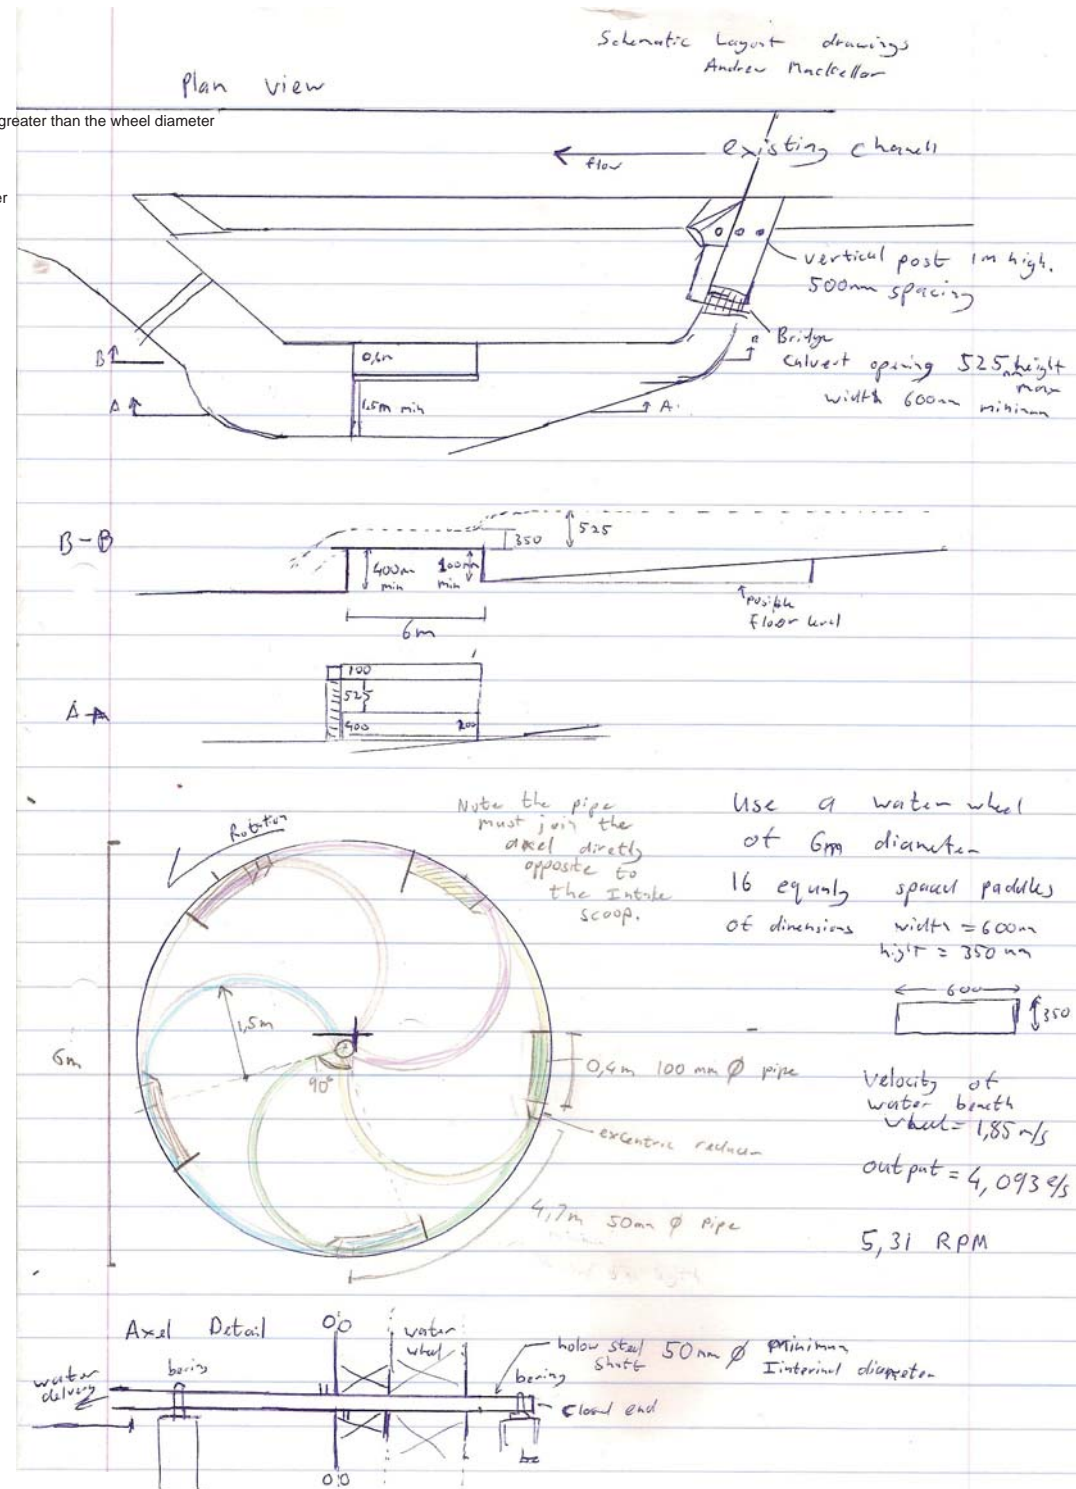 Schematic Layout drawings
Andrew Mackellar
Plan view
greater than the wheel diameter
er
flow
existing chanell
vertical post 1m high.
500mm spacing
Bridge
Culvert opening 525mm height
max
width 600mm minimum
B
0,6m
A
1.5m min
A.
B-B
400mm
min
100mm
min
350
525
6m
possible
floor level
A-A
100
525
400
200
Rotation
Note the pipe
must join the
axel directly
opposite to
the Intake
scoop.
Use a water wheel
of 6m diameter
16 equaly spaced paddles
of dimensions width = 600mm
hight = 350mm
600
350
6m
1,5m
90°
0,4m 100mm Ø pipe
excentric reducer
4,7m 50mm Ø pipe
Velocity of
water beneth
wheel = 1,85 m/s
output = 4,093 l/s
5,31 RPM
Axel Detail
water
wheel
water
delivery
bering
holow steel 50mm Ø minimum
shaft
Iinterinal diameter
bering
closed end